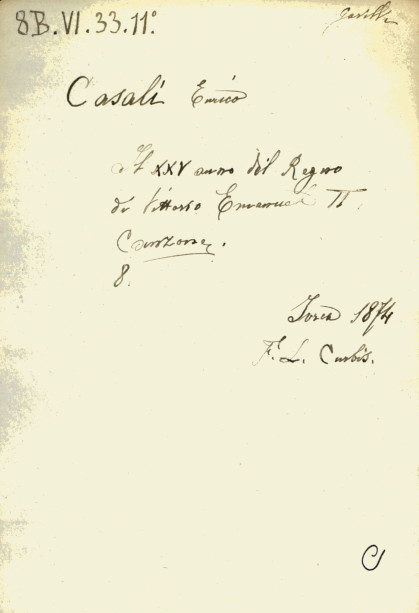 8B.VI.33.11°
Casali Enrico
Il XXV anno del Regno
di Vittorio Emanuele II
Canzone.
8.
Ivrea 1874
F. L. Curbis.